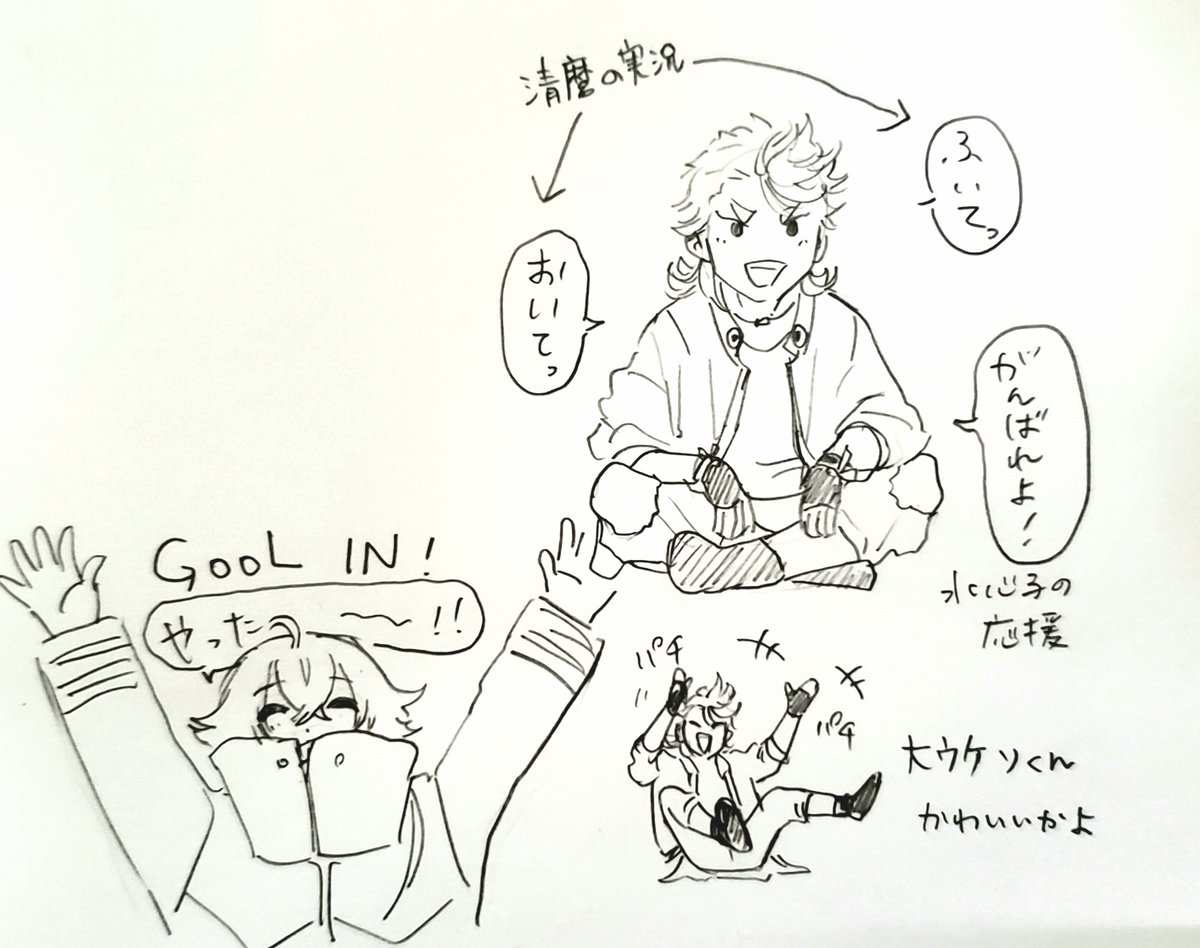 清麿の実況
ふいてっ
おいてっ
がんばれよ!
水心子の
応援
GOOL IN!
やったー〜〜!!
パチ
パチ
大ウケソくん
かわいいかよ